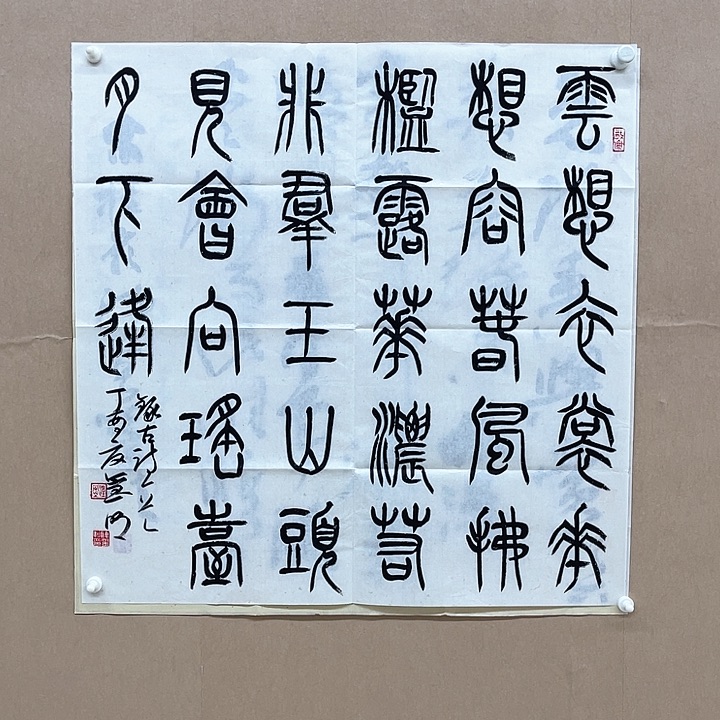 雲想衣裳華
想容春風拂
檻露華濃若
非羣玉山頭
見會向瑤臺
月下逢
錄古詩
丁酉